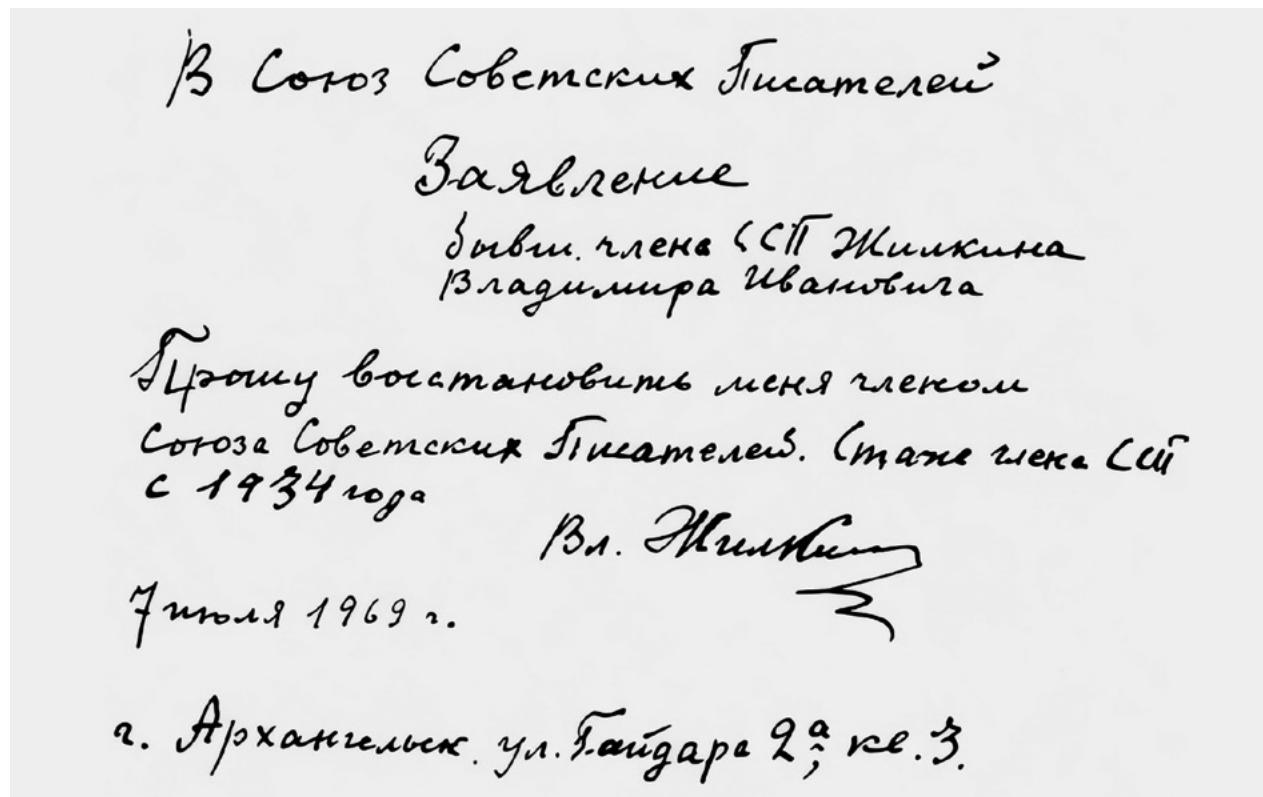 В Союз Советских Писателей
Заявление
бывш. члена ССП Жилкина
Владимира Ивановича
Прошу восстановить меня членом
Союза Советских Писателей. Стаж члена ССП
с 1934 года
Вл. Жилкин
7 июля 1969 г.
г. Архангельск. ул. Гайдара 2а; кв. 3.